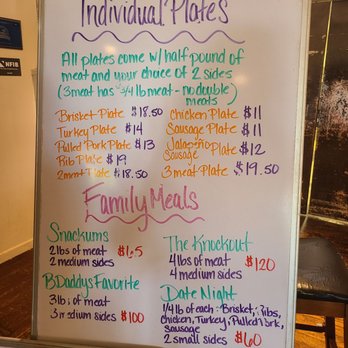 NFIB
Individual Plates
All plates come w/ half pound of
meat and your choice of 2 sides
(3 meat has 3/4 lb meat - no double
meats)
Brisket Plate $18.50
Turkey Plate $14
Pulled Pork Plate $13
Rib Plate $19
2 meat Plate $18.50
Chicken Plate $11
Sausage Plate $11
Jalapeño Sausage Plate $12
3 meat Plate $19.50
Family Meals
Snackums
2 lbs of meat
2 medium sides
BDaddys Favorite
3 lbs of meat
3 medium sides $100
The Knockout
4 lbs of meat $120
4 medium sides
Date Night
1/4 lb of each: Brisket, Ribs,
chicken, Turkey, Pulled Pork,
sausage
2 small sides $60